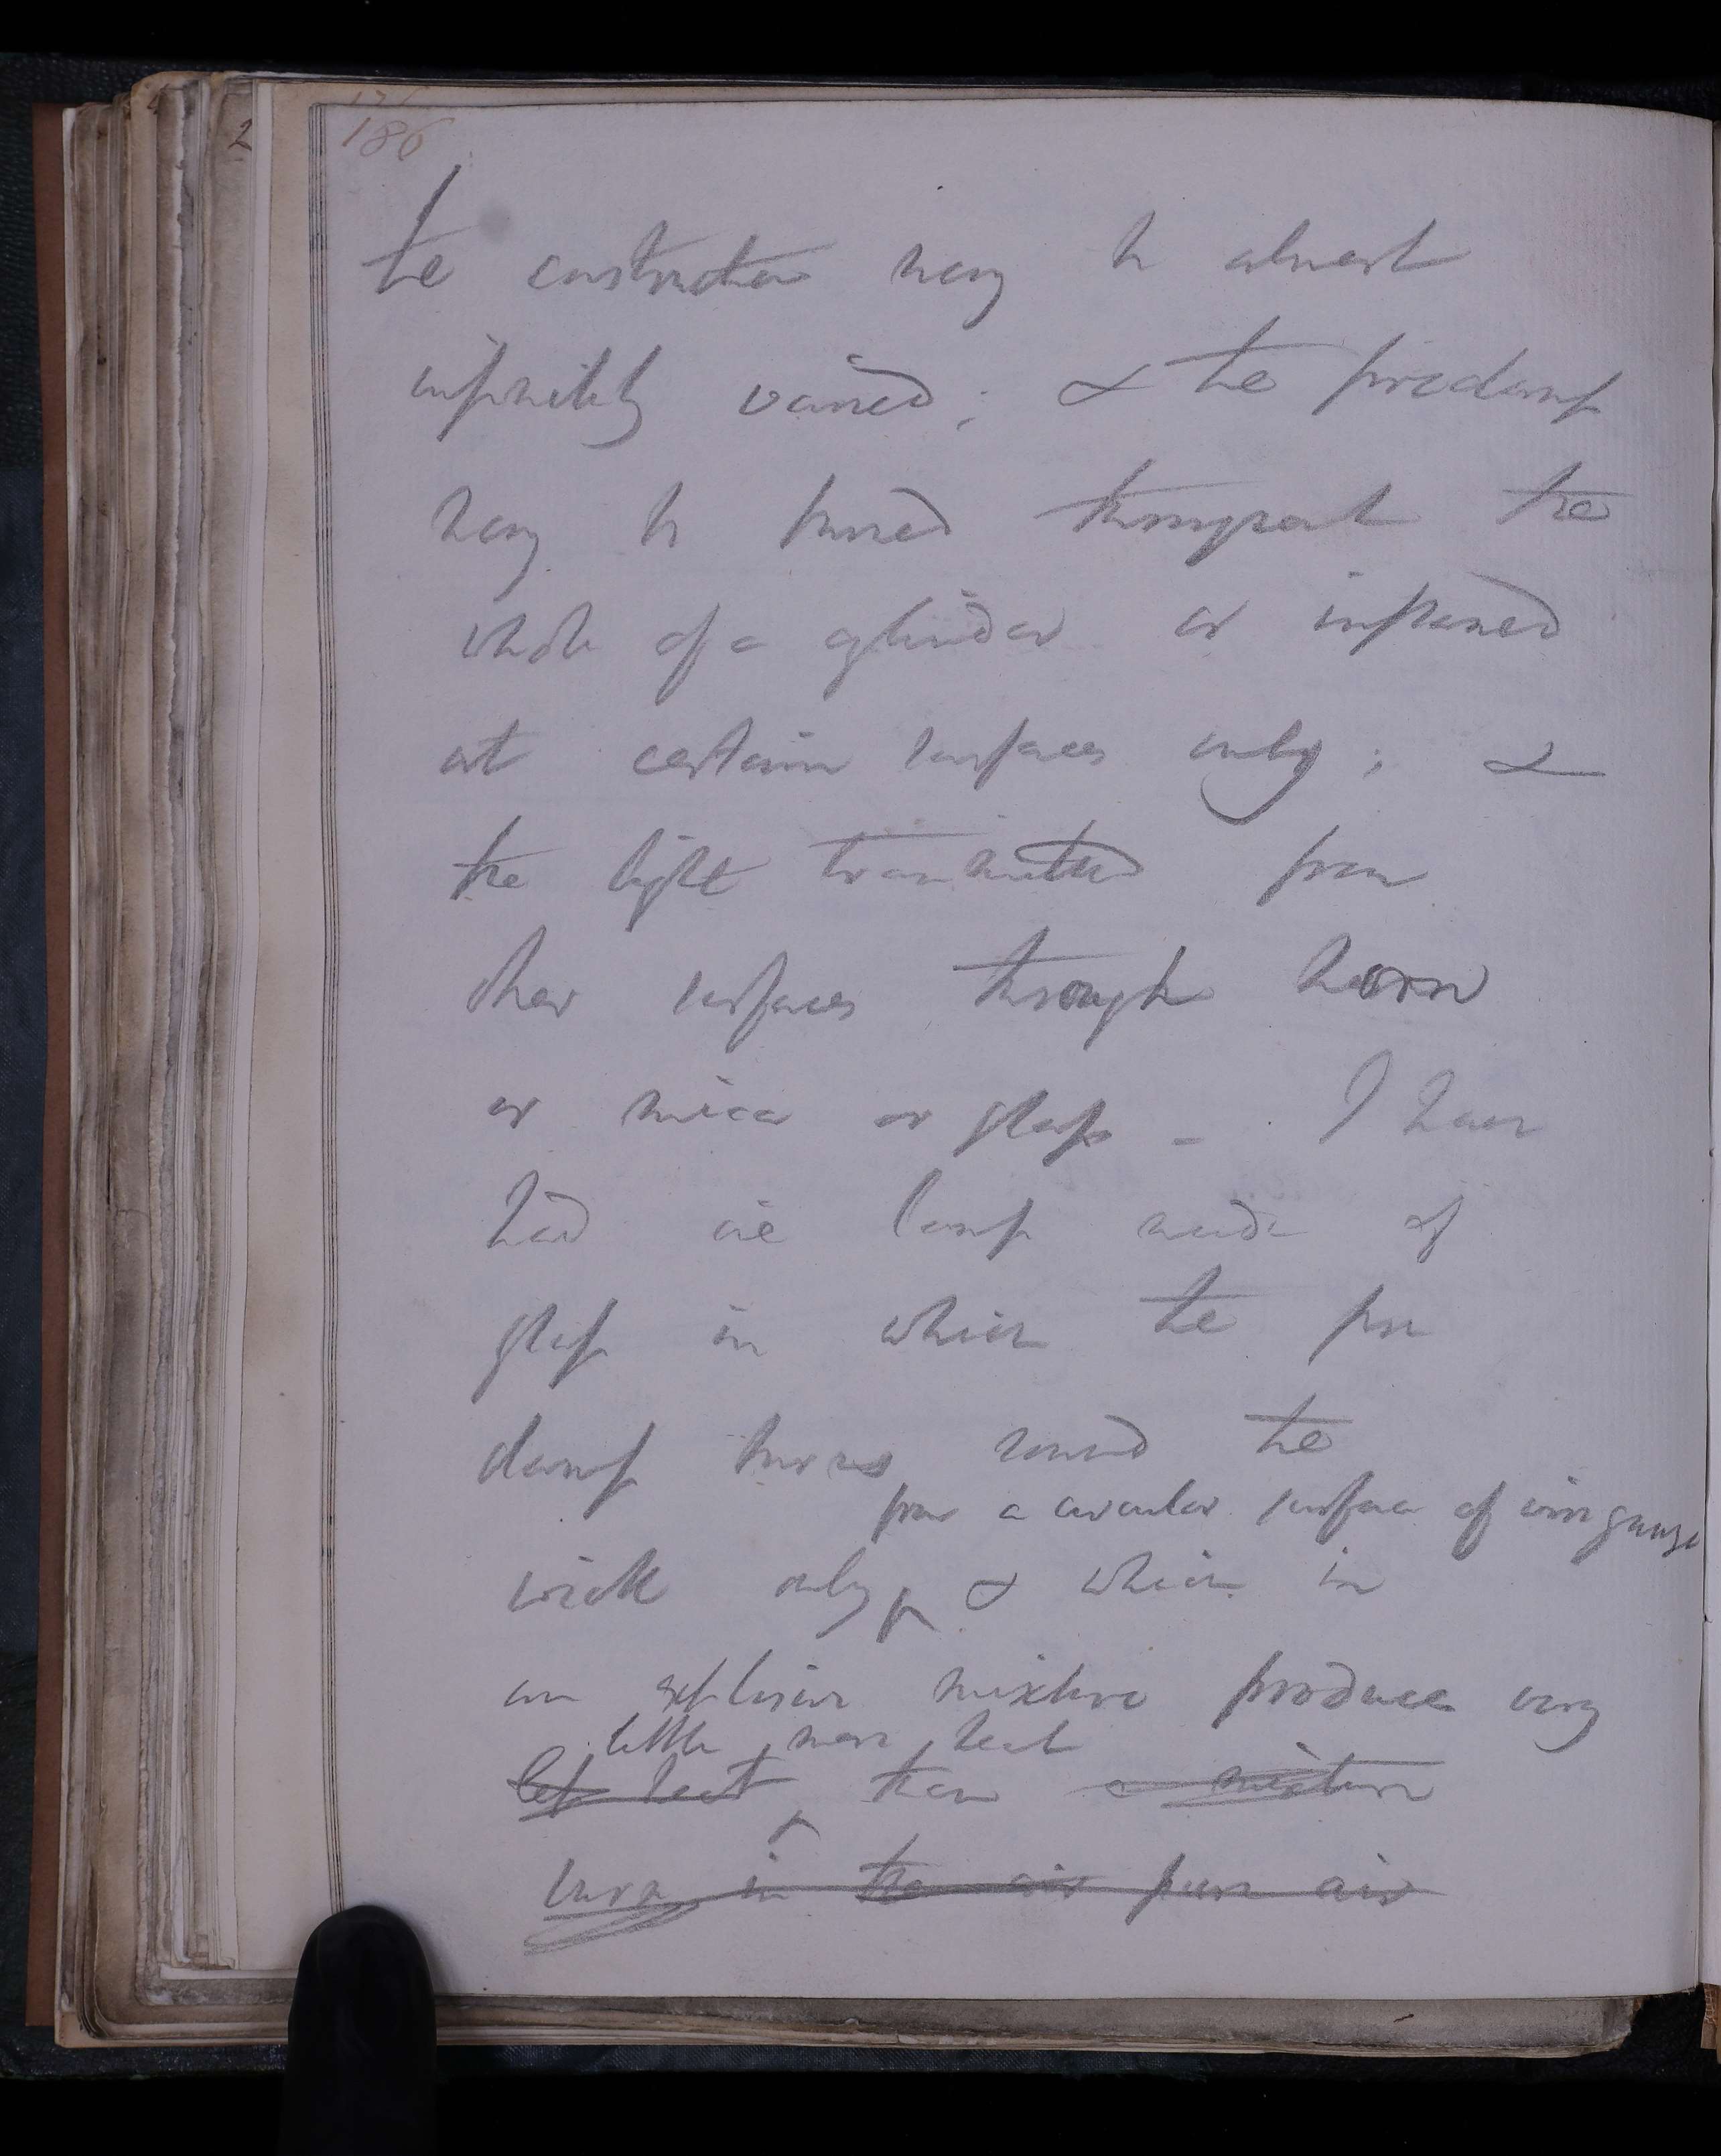 186
the construction may be almost
infinitely varied; & the firedamp
may be burned throughout the
whole of a cylinder or inflamed
at certain surfaces only; &
the light transmitted from
other surfaces through horn
or mica or glass – I have
had one lamp made of
glass in which the fire
damp burns round the
from a circular surface of wire gauze
wick only & which in
an explosive mixture produces very
little more heat
less heat than a mixture
burn in the air pure air